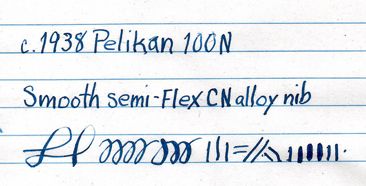 c.1938 Pelikan 100N
Smooth semi-Flex CN alloy nib